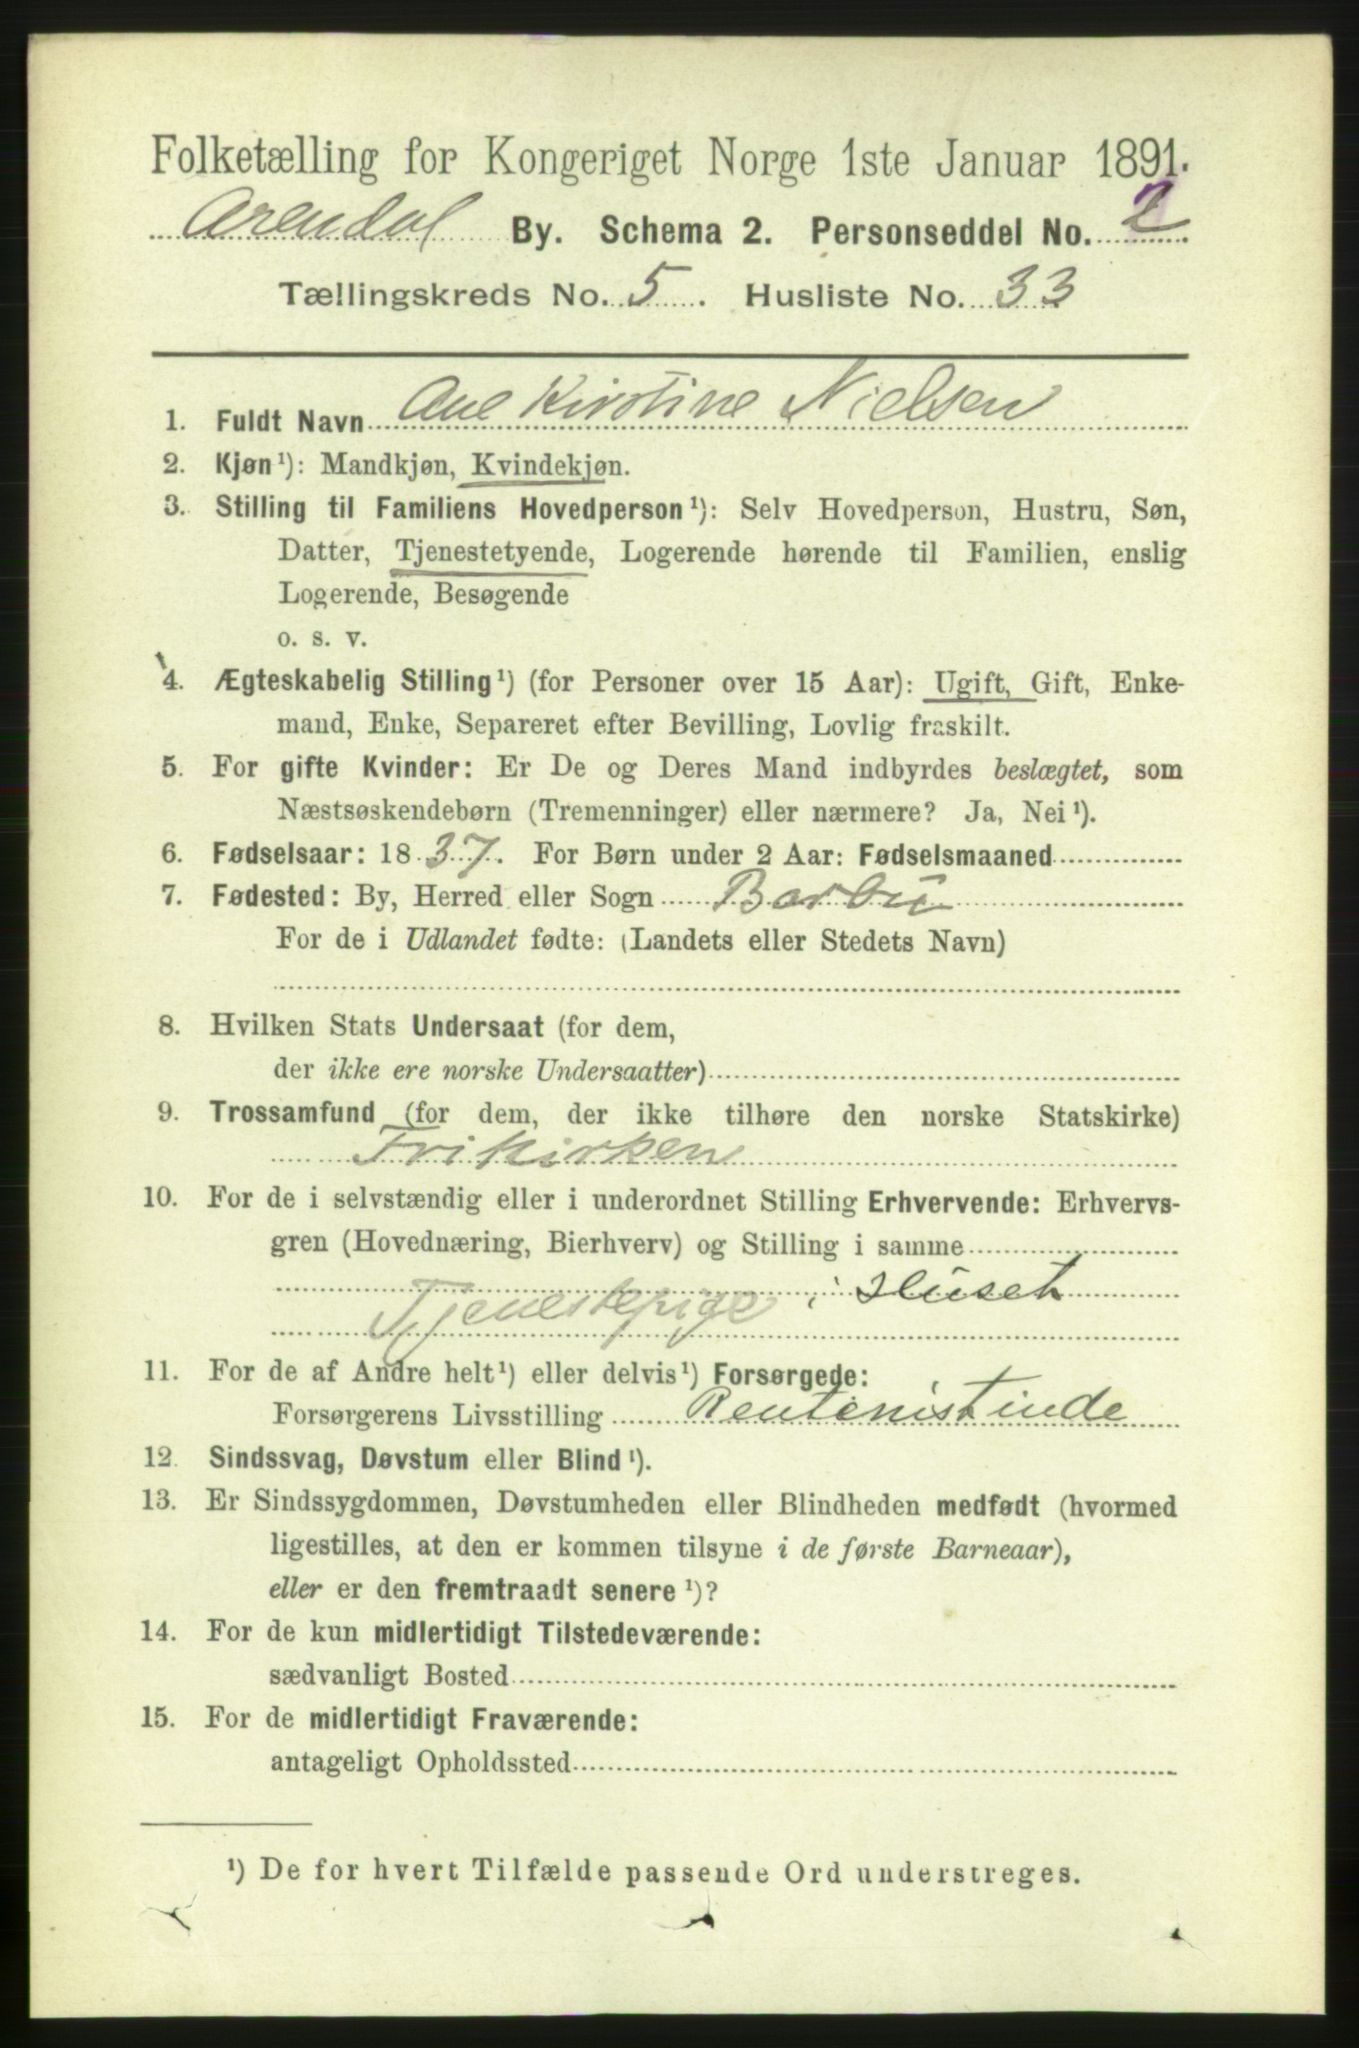 Folketælling for Kongeriget Norge 1ste Januar 1891.
Arendal By. Schema 2. Personseddel No. 2
Tællingskreds No. 5. Husliste No. 33
1. Fuldt Navn Ane Kirstine Nielsen
2. Kjøn ¹): Mandkjøn, Kvindekjøn.
3. Stilling til Familiens Hovedperson ¹): Selv Hovedperson, Hustru, Søn,
Datter, Tjenestetyende, Logerende hørende til Familien, enslig
Logerende, Besøgende
o. s. v.
4. Ægteskabelig Stilling ¹) (for Personer over 15 Aar): Ugift, Gift, Enke-
mand, Enke, Separeret efter Bevilling, Lovlig fraskilt.
5. For gifte Kvinder: Er De og Deres Mand indbyrdes beslægtet, som
Næstsøskendebørn (Tremenninger) eller nærmere? Ja, Nei ¹).
6. Fødselsaar: 1837. For Børn under 2 Aar: Fødselsmaaned
7. Fødested: By, Herred eller Sogn Barbu
For de i Udlandet fødte: (Landets eller Stedets Navn)
8. Hvilken Stats Undersaat (for dem,
der ikke ere norske Undersaatter)
9. Trossamfund (for dem, der ikke tilhøre den norske Statskirke)
Frikirken
10. For de i selvstændig eller i underordnet Stilling Erhvervende: Erhvervs-
gren (Hovednæring, Bierhverv) og Stilling i samme
Tjenestepige i Huset
11. For de af Andre helt ¹) eller delvis ¹) Forsørgede:
Forsørgerens Livsstilling Rentenistinde
12. Sindssvag, Døvstum eller Blind ¹).
13. Er Sindssygdommen, Døvstumheden eller Blindheden medfødt (hvormed
ligestilles, at den er kommen tilsyne i de første Barneaar),
eller er den fremtraadt senere ¹)?
14. For de kun midlertidigt Tilstedeværende:
sædvanligt Bosted
15. For de midlertidigt Fraværende:
antageligt Opholdssted
¹) De for hvert Tilfælde passende Ord understreges.